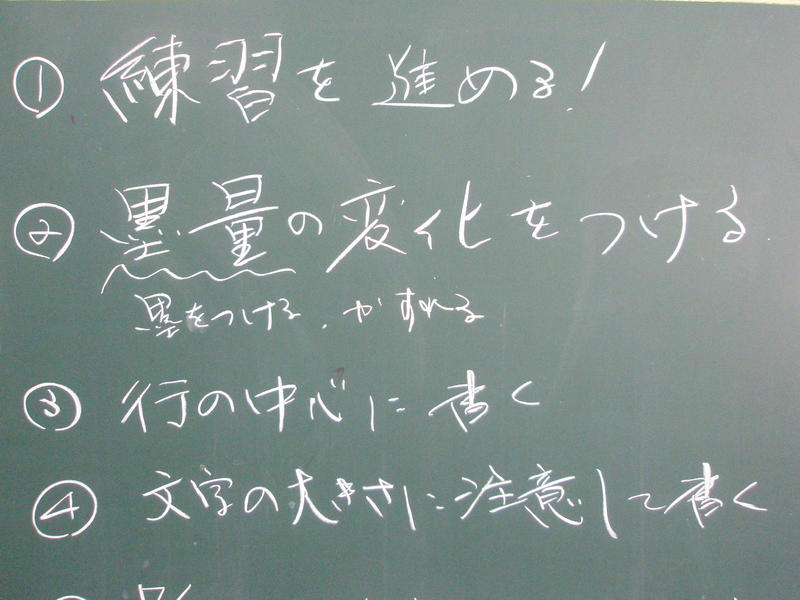 ① 練習を進める!
② 墨量の変化をつける
墨をつける、かすれる
③ 行の中心に書く
④ 文字の大きさに注意して書く